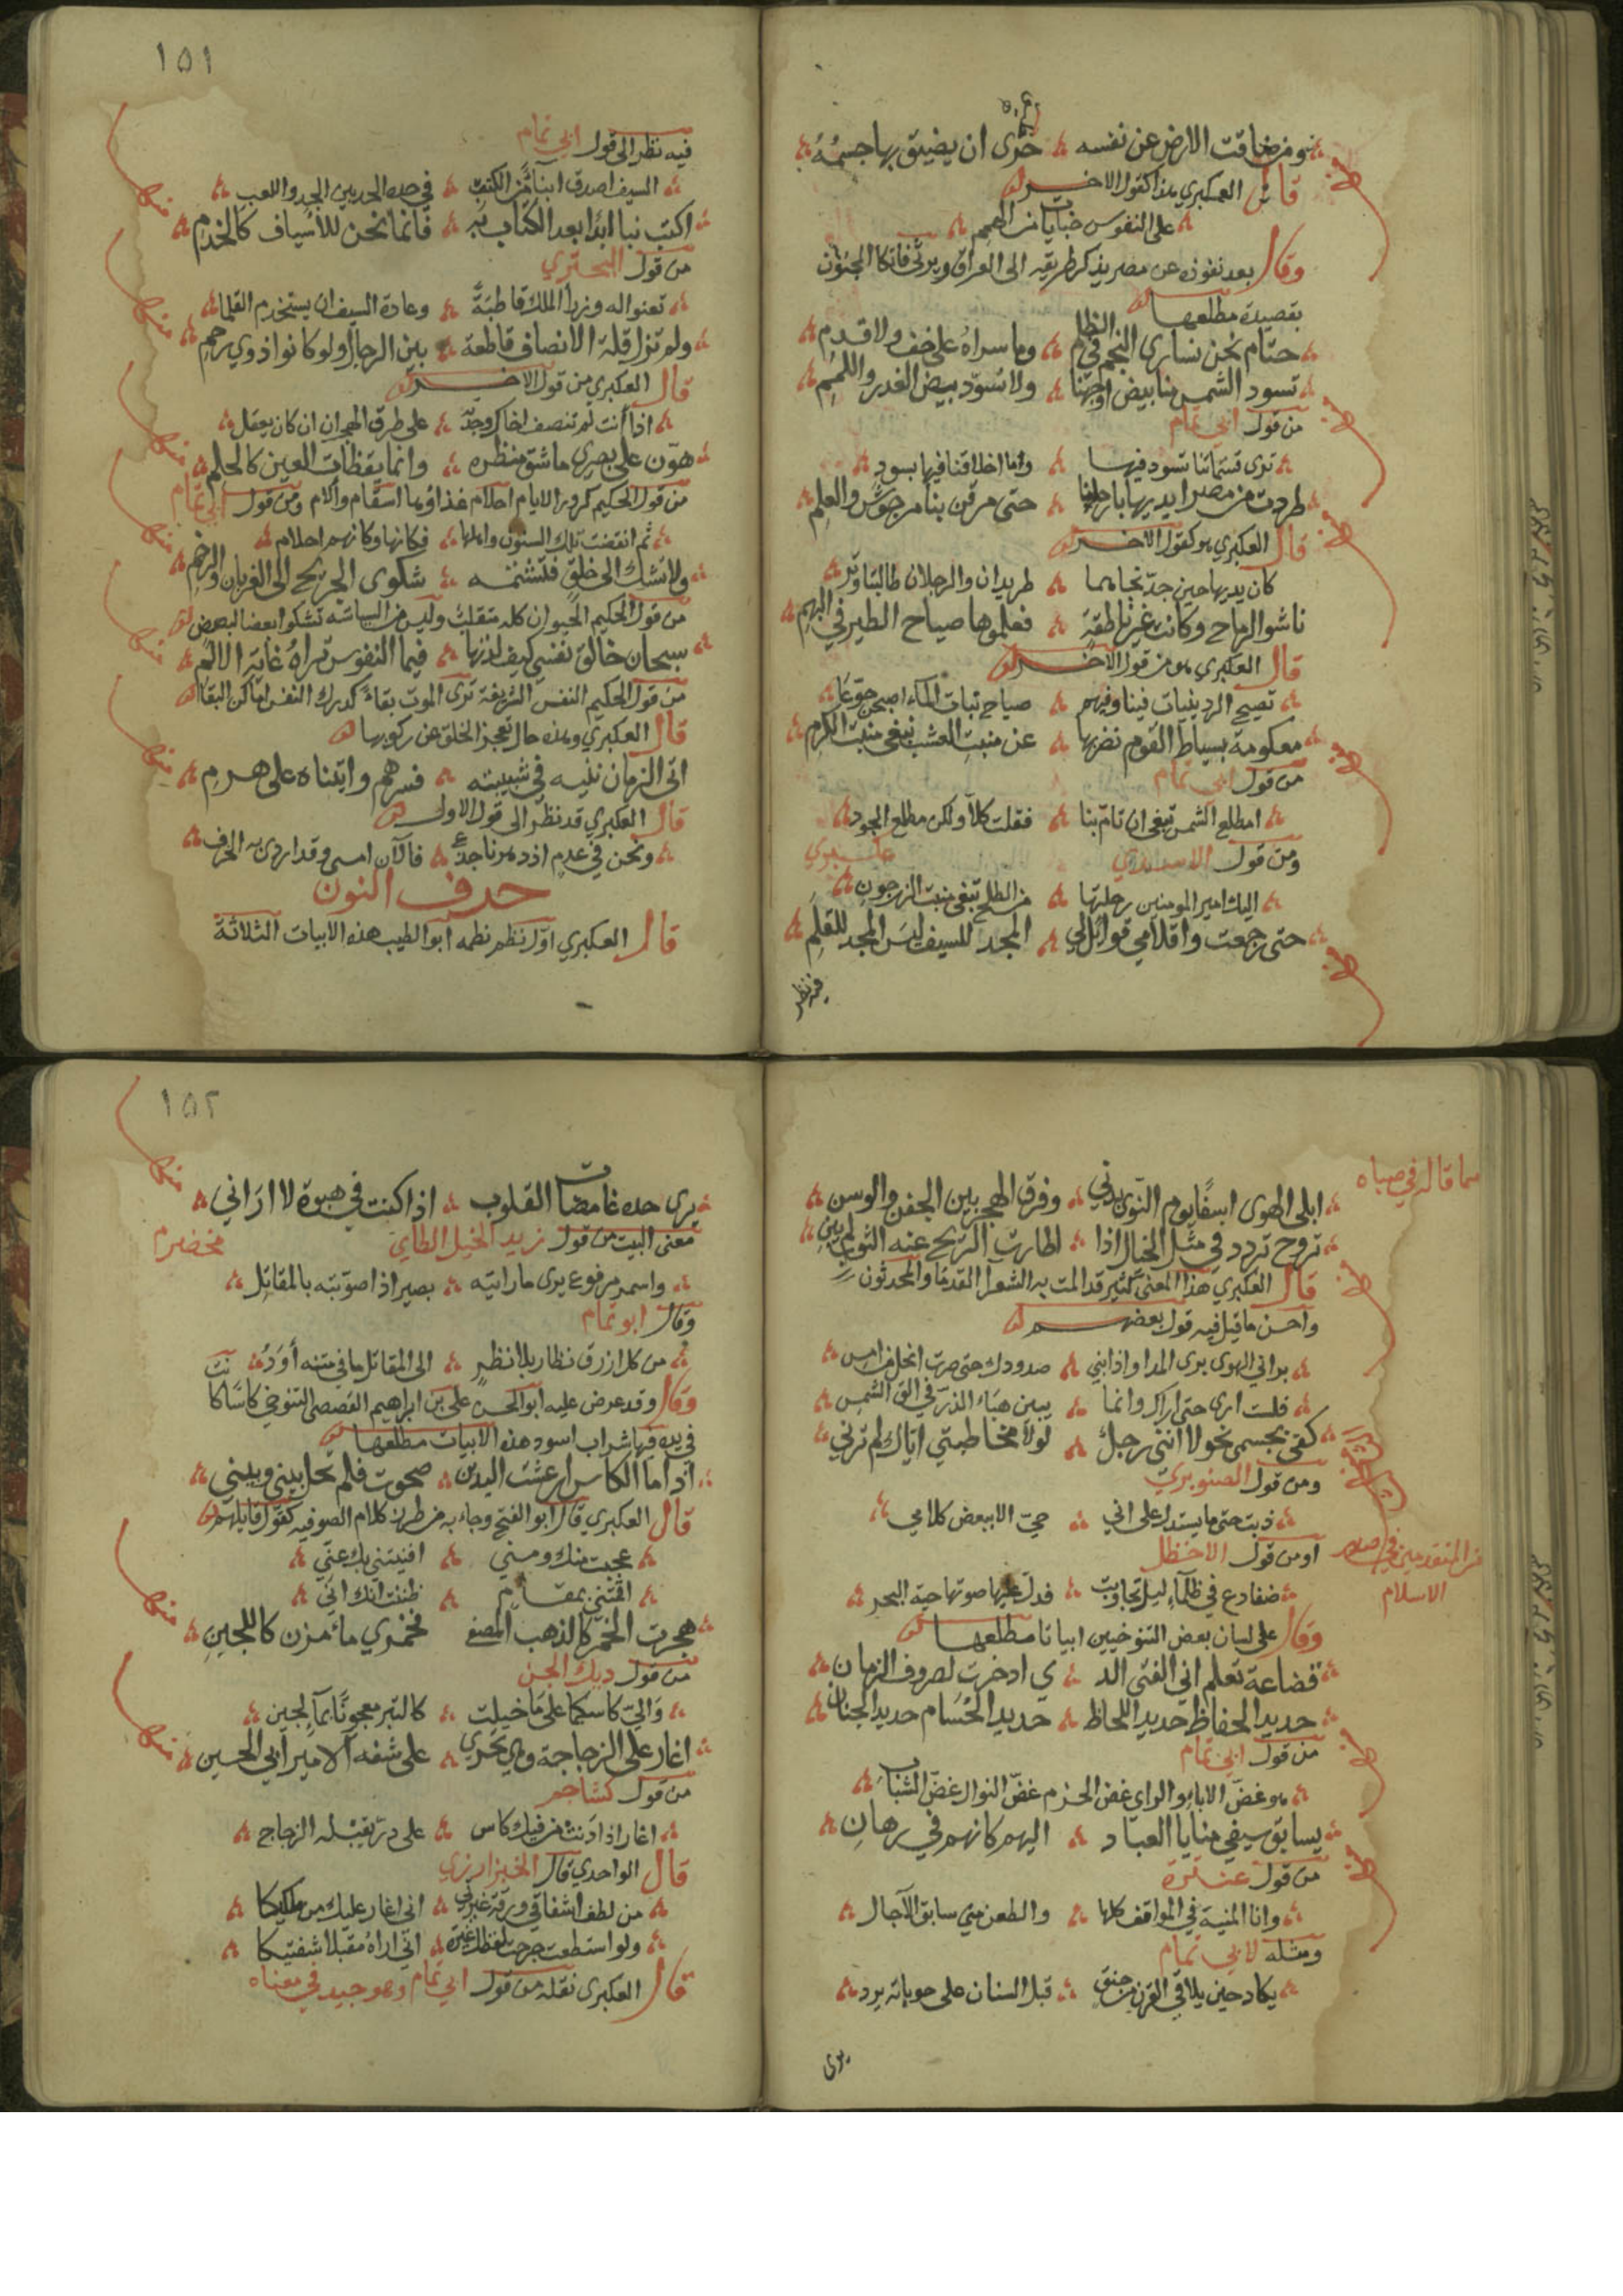 ومن ضاقت الارض عن نفسه حرى ان يضيق بها جسمه
قال العكبري هذا كقول الاخر
على النفوس جنايات من الهمم
وقال بعد نفوذه عن مصر يذكر طريقه الى العراق ويرثي فاتكا المجنون
بقصيدة مطلعها
حتام نحن نساري النجم في الظلم وما سراه على خف ولا قدم
تسود الشمس منا بيض اوجهنا ولا تسود بيض الغدر واللمم
من قول ابي تمام
ترى قسماتنا تسود فيها وما اخلاقنا فيها بسود
طردت من مصر ايديها بارجلها حتى مرقن بنا من جوش والعلم
قال العكبري هو كقول الاخر
كان يديها حين جد نجاهما طريدان والرجلان طالبتا وتر
ناشوا الرماح وكانت غير ناطقة فعلموها صياح الطير في البهم
قال العكبري هو من قول الاخر
تصيح الردينيات فينا وفيهم صياح بنات الماء اصبحن جوعا
معكومة بسياط القوم نضربها عن منبت العشب نبغى منبت الكرم
من قول ابي تمام
امطلع الشمس تبغى ان تام بنا فقلت كلا ولكن مطلع الجود
ومن قول
اليك امير المومنين رحلتها من الطلح تبغى منبت الزرجون
حتى رجعت واقلامي قوائل لي المجد للسيف ليس المجد للقلم
فيه نظر
١٥١
فيه نظر الى قول ابي تمام
السيف اصدق انباء من الكتب في حده الحد بين الجد واللعب
اكتب بنا ابدا بعد الكتاب به فانما نحن للاسياف كالخدم
من قول البحتري
تعنوا له وزراء الملك قاطبة وعادة السيف ان يستخدم القلما
ولم تزل قلة الانصاف قاطعة بين الرجال ولو كانوا ذوي رحم
قال العكبري من قول الاخر
اذا انت لم تنصف اخاك وجدته على طرف الهجران ان كان يعقل
هون على بصر ما شق منظره وانما يقظات العين كالحلم
من قول الحكيم كرور الايام احلام غذاؤها اسقام وآلام ومن قول ابي تمام
ثم انقضت تلك السنون واهلها فكانها وكانهم احلام
ولا تشك الى خلق فتشمته شكوى الجريح الى الغربان والرخم
من قول الحكيم الحيوان كله متقلب وليس من السياسة تشكوا بعضا لبعض
سبحان خالق نفسي كيف لذتها فيما النفوس تراه غاية الالم
من قول الحكيم النفس الشريفة ترى الموت بقاء لدرك النفس اماكن البقا
قال العكبري وهذه حال تعجز الخلق عن ركوبها
اتى الزمان بنيه في شبيبته فسرهم واتيناه على هرم
قال العكبري قد نظر الى قول الاول
ونحن في عدم اذ دهرنا جدع فالآن امسى وقد اردى به الخرف
حرف النون
قال العكبري اول نظم نظمه ابو الطيب هذه الابيات الثلاثة
مما قاله في صباه
ابلى الهوى اسفا يوم النوى بدني وفرق الهجر بين الجفن والوسن
روح تردد في مثل الخلال اذا اطارت الريح عنه الثوب لم يبن
قال العكبري هذا المعنى كثير قد المت به الشعرا القدما والمحدثون
واحسن ما قيل فيه قول بعضهم
براني الهوى بري المدا واذابني صدودك حتى صرت انحل من امس
فلست ارى حتى اراك وانما يبين هباء الذر في الق الشمس
كفى بجسمى نحولا انني رجل لولا مخاطبتي اياك لم ترني
ومن قول الصنوبري
ذبت حتى ما يستدل على اني حي الا ببعض كلامي
او من قول الاخطل
من المتقدمين في صدر الاسلام
ضفادع في ظلماء ليل تجاوبت فدل عليها صوتها حية البحر
وقال على لسان بعض التنوخيين ابياتا مطلعها
قضاعة تعلم اني الفتى الد ي ادخرت لصروف الزمان
حديد الحفاظ حديد اللحاظ حديد الحسام حديد الجنان
من قول ابي تمام
هو غض الاباء والراي غض الحزم غض النوال غض الشباب
يسابق سيفي منايا العباد اليهم كانهم في رهان
من قول عنترة
وانا المنية في المواقف كلها والطعن مني سابق الآجال
ومثله لابي تمام
يكاد حين يلاقي القرن من حنق قبل السنان على حوبائه يرد
يرى
١٥٢
يرى حده غامضات القلوب اذا كنت في هبوة لا اراني
معنى البيت من قول زيد الخيل الطائي مخضرم
واسمر مرفوع يرى ما رايته بصير اذا صوبته بالمقاتل
وقال ابو تمام
من كل ازرق نظار بلا نظر الى المقاتل ما في متنه أود
وقال وقد عرض عليه ابو الحسن علي بن ابراهيم التنوخي كاسا كا نت
في يده فيها شراب اسود هذه الابيات مطلعها
اذا ما الكاس ارعشت اليدين صحوت فلم تحل بيني وبيني
قال العكبري قال ابو الفتح وجاء به من طرف كلام الصوفيه كقول قايلهم
عجبت منك ومني افنيتني بك عني
اقمتني بمقام ظننت انك اني
هجرت الخمر كالذهب المصفى فخمري ماء مزن كاللجين
من قول ديك الجن
كالتبر معجونا بماء لجين
اغار على الزجاجة وهي تجري على شفه الامير ابي الحسين
من قول كشاجم
اغار اذا دنت من فيك كاس على در يقبله الزجاج
قال الواحدي قال الخبزارزي
من لطف اشفاقي ورقة غيرتي اني اغار عليك من ملكيكا
ولو استطعت جرحت لفظك غيرة اني اراه مقبلا شفتيكا
قال العكبرى نقله من قول ابي تمام وهو جيد في معناه